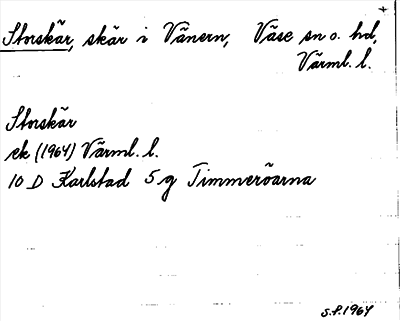 Storskär, skär i Vänern, Väse sn o. hd,
Värml. l.
Storskär
ek (1964) Värml. l.
10 D Karlstad 5 g Timmeröarna
S.P. 1964